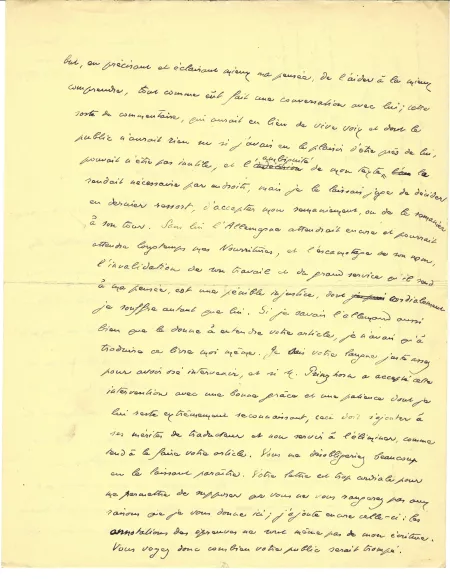 but, en précisant et éclairant mieux sa pensée, de l'aider à la mieux
comprendre, tout comme eût fait une conversation avec lui ; cette
sorte de commentaire, qui aurait eu lieu de vive voix et dont le
public n'aurait rien su si j'avais eu le plaisir d'être près de lui,
pouvait n'être pas inutile, et l'ambiguïté de mon texte le
rendait nécessaire par endroits, mais je le laissais juge de décider
en dernier ressort, d'accepter mon remaniement, ou de le remanier
à son tour. Sans lui l'Allemagne attendrait encore et pourrait
attendre longtemps mes Nourritures, et l'escamotage de son nom,
l'invalidation de son travail et du grand service qu'il rend
à ma pensée, est une pénible injustice, dont cordialement
je souffre autant que lui. Si je savais l'allemand aussi
bien que le donne à entendre votre article, je n'avais qu'à
traduire ce livre moi même. Je sais votre langue juste assez
pour avoir osé intervenir, et si M. Prinzhorn a accepté cette
intervention avec une bonne grâce et une patience dont je
lui reste extrêmement reconnaissant, ceci doit s'ajouter à
ses mérites de traducteur et non servir à l'éliminer, comme
tend à le faire votre article. Vous me désobligeriez beaucoup
en le laissant paraître. Votre lettre est trop cordiale pour
me permettre de supposer que vous ne vous rangerez pas aux
raisons que je vous donne ici ; j'ajoute encore celle-ci : les
annotations des épreuves ne sont même pas de mon écriture.
Vous voyez donc combien votre public serait trompé.